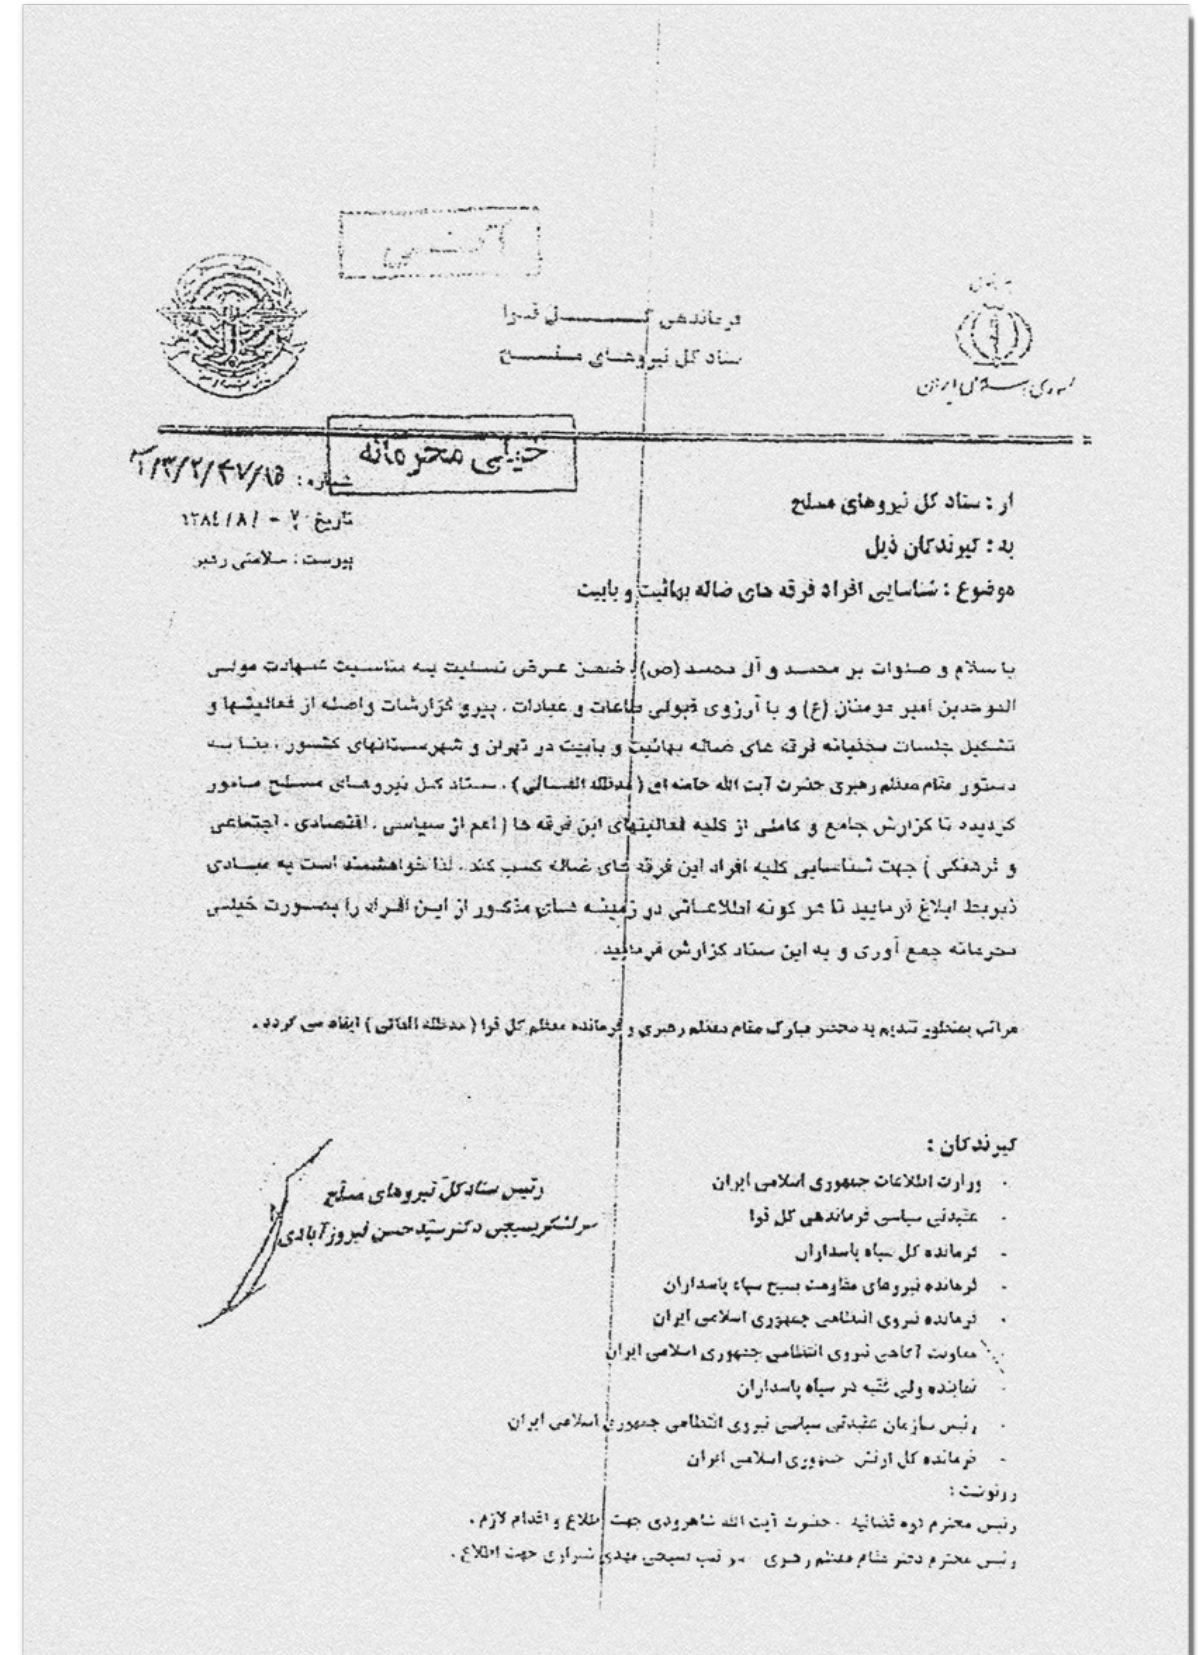 فرماندهی کل قوا
ستاد کل نیروهای مسلح
جمهوری اسلامی ایران
خیلی محرمانه
شماره :
تاریخ : ۱۳۸٤/۸/
پیوست : سلامتی رهبر
از : ستاد کل نیروهای مسلح
به : گیرندگان ذیل
موضوع : شناسایی افراد فرقه های ضاله بهائیت و بابیت
با سلام و صلوات بر محمد و آل محمد (ص) ، ضمن عرض تسلیت به مناسبت شهادت مولی
الموحدین امیر مومنان (ع) و با آرزوی قبولی طاعات و عبادات . پیرو گزارشات واصله از فعالیتها و
تشکیل جلسات مخفیانه فرقه های ضاله بهائیت و بابیت در تهران و شهرستانهای کشور ، بنا به
دستور مقام معظم رهبری حضرت آیت الله خامنه ای ( مدظله العالی ) ، ستاد کل نیروهای مسلح مامور
گردیده تا گزارش جامع و کاملی از کلیه فعالیتهای این فرقه ها ( اعم از سیاسی ، اقتصادی ، اجتماعی
و فرهنگی ) جهت شناسایی کلیه افراد این فرقه های ضاله کسب کند . لذا خواهشمند است به مبادی
ذیربط ابلاغ فرمایید تا هر گونه اطلاعاتی در زمینه های مذکور از این افراد را بصورت خیلی
محرمانه جمع آوری و به این ستاد گزارش فرمایید .
مراتب بمنظور تقدیم به محضر مبارک مقام معظم رهبری و فرمانده معظم کل قوا ( مدظله العالی ) ایفاد می گردد .
رئیس ستاد کل نیروهای مسلح
سرلشکر بسیجی دکتر سیّد حسن فیروزآبادی
گیرندگان :
- وزارت اطلاعات جمهوری اسلامی ایران
- عقیدتی سیاسی فرماندهی کل قوا
- فرمانده کل سپاه پاسداران
- فرمانده نیروهای مقاومت بسیج سپاه پاسداران
- فرمانده نیروی انتظامی جمهوری اسلامی ایران
- معاونت آگاهی نیروی انتظامی جمهوری اسلامی ایران
- نماینده ولی فقیه در سپاه پاسداران
- رئیس سازمان عقیدتی سیاسی نیروی انتظامی جمهوری اسلامی ایران
- فرمانده کل ارتش جمهوری اسلامی ایران
رونوشت :
رئیس محترم قوه قضائیه - حضرت آیت الله شاهرودی جهت اطلاع و اقدام لازم .
رئیس محترم دفتر مقام معظم رهبری جهت اطلاع .